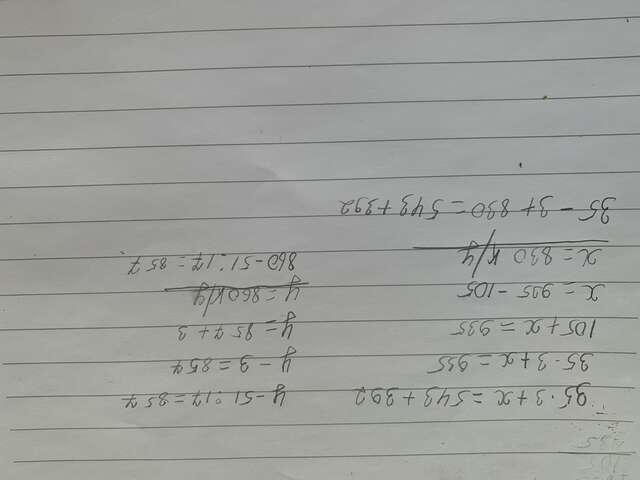 35 · 3 + x = 543 + 392
35 · 3 + x = 935
105 + x = 935
x = 935 - 105
x = 830 к/у
35 - 3 + 830 = 543 + 392
y - 51 : 17 = 857
y - 3 = 857
y = 857 + 3
y = 860 к/у
860 - 51 : 17 = 857